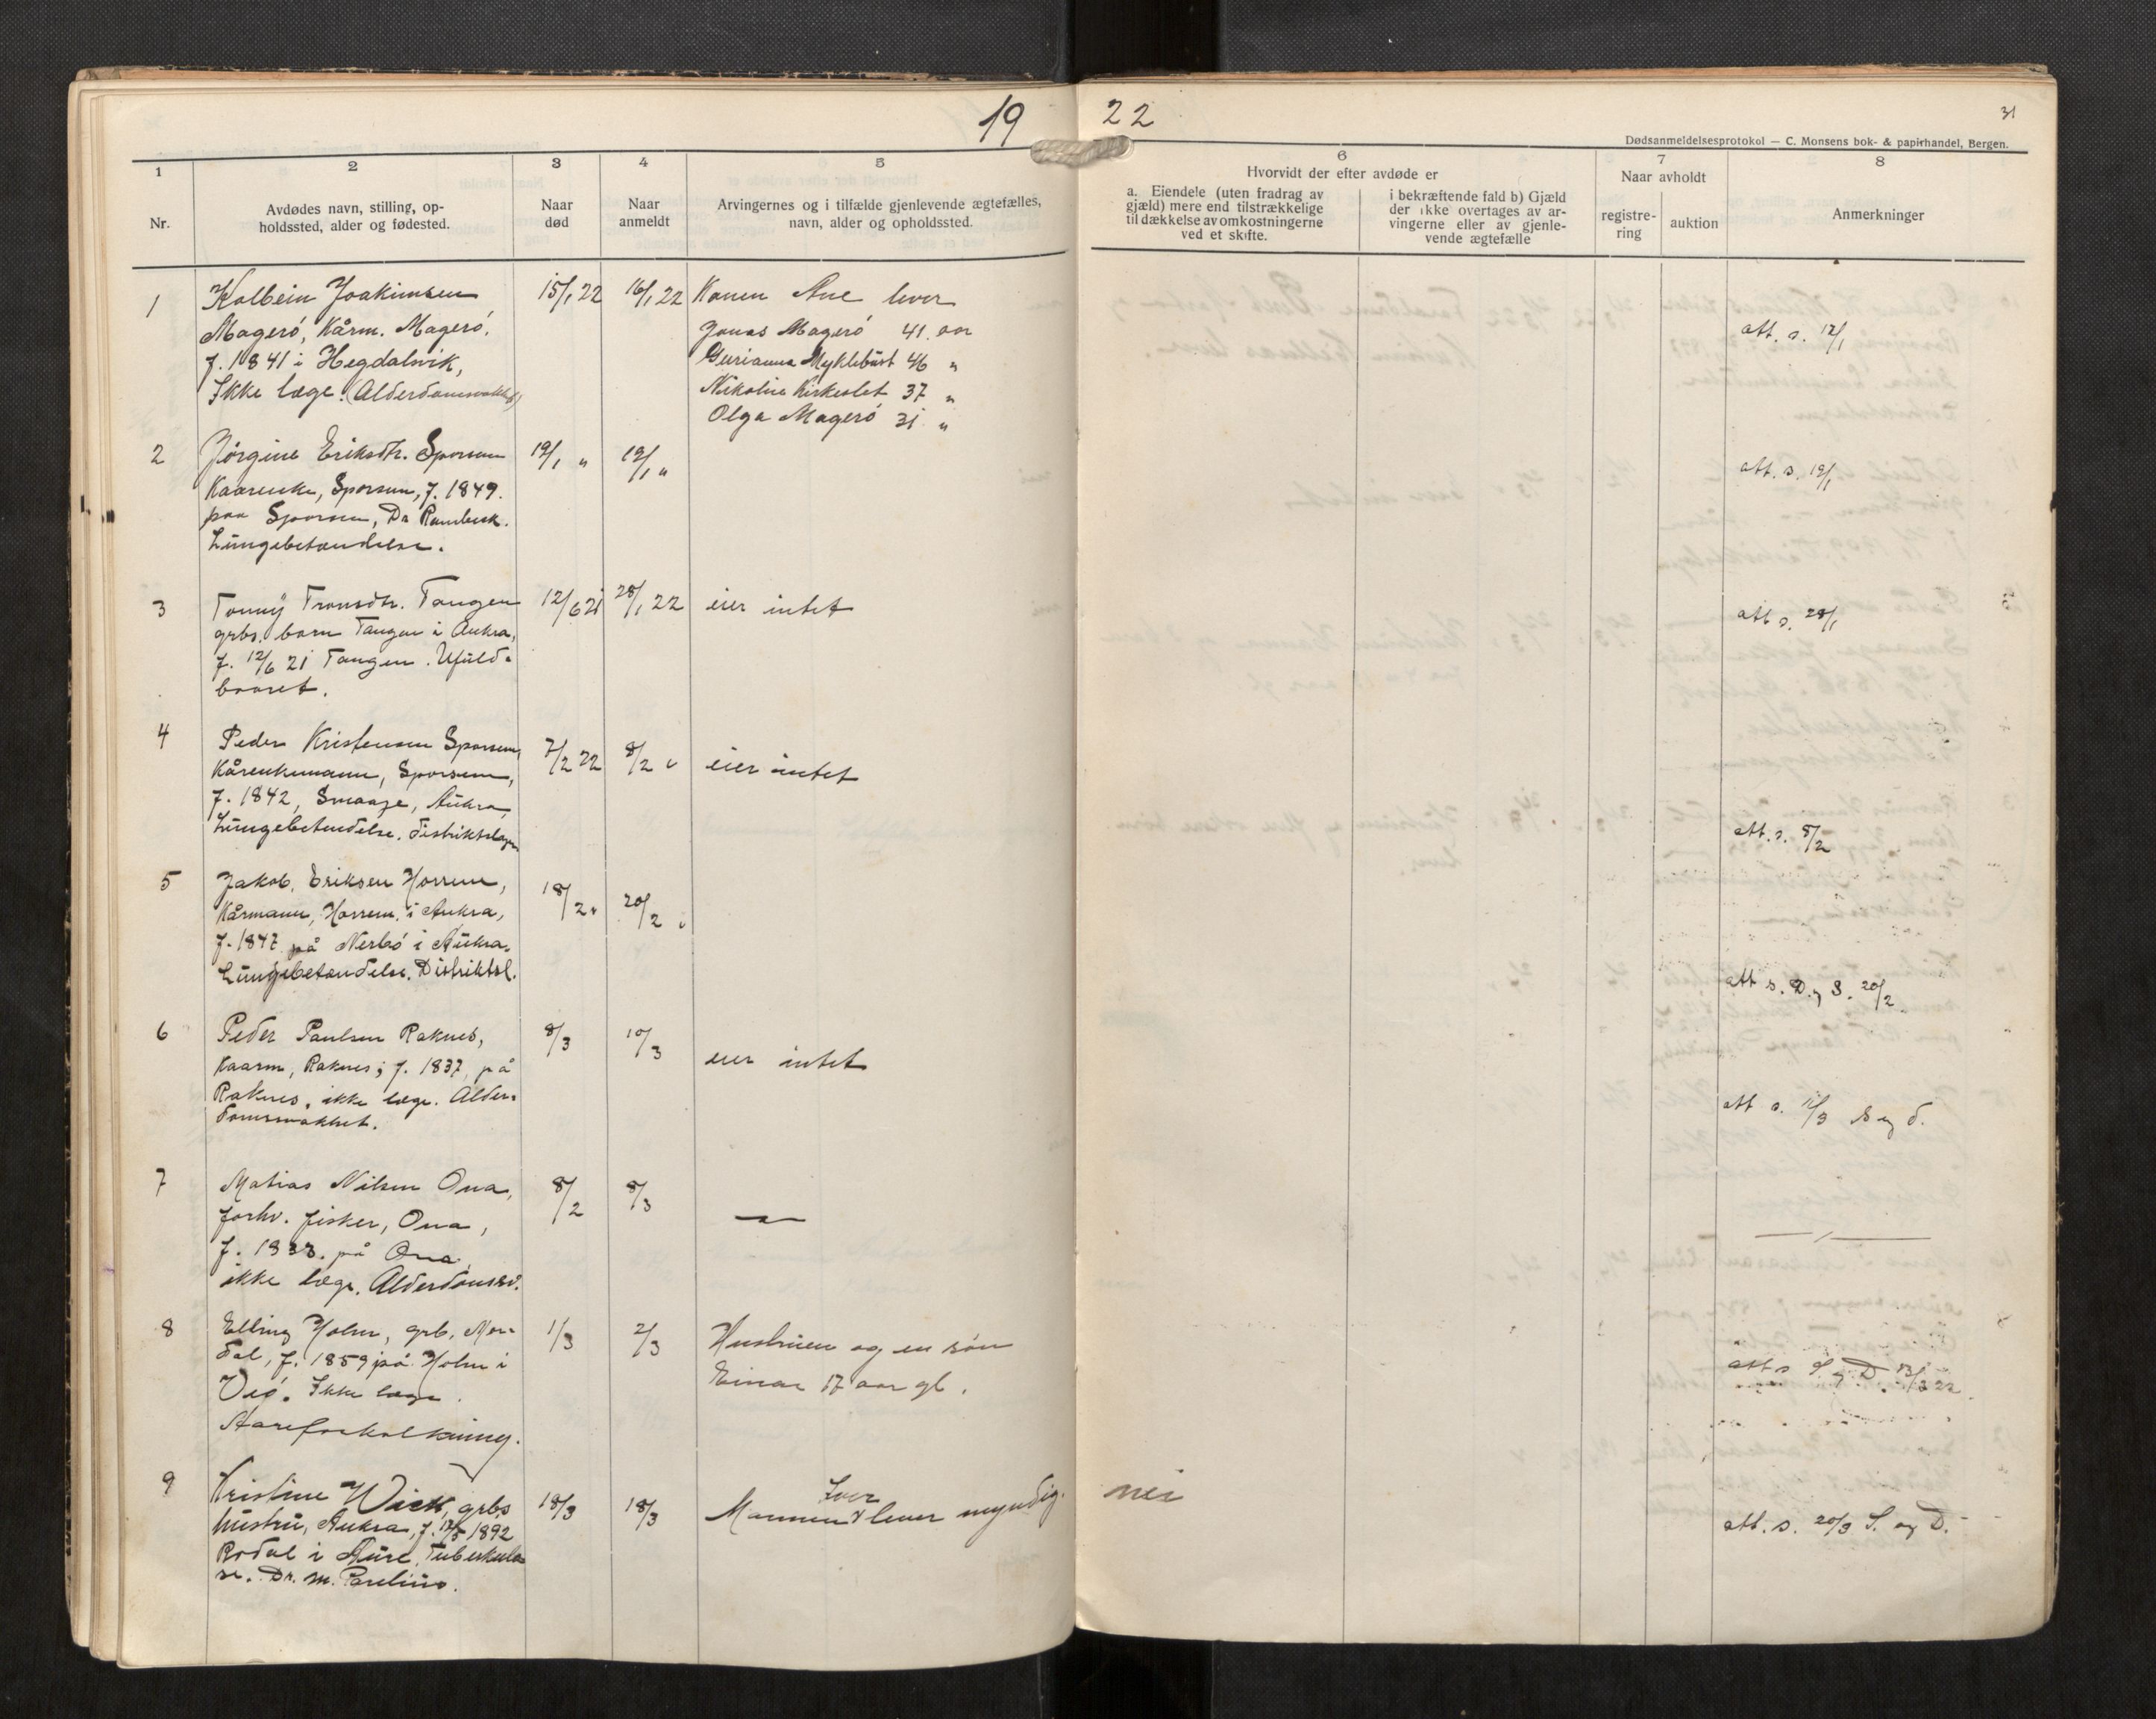 19 22
31
Dødsanmeldelsesprotokol — C. Monsens bok- & papirhandel, Bergen.
1
Nr.
2
Avdødes navn, stilling, op-
holdssted, alder og fødested.
3
Naar
død
4
Naar
anmeldt
5
Arvingernes og i tilfælde gjenlevende ægtefælles,
navn, alder og opholdssted.
6
Hvorvidt der efter avdøde er
a. Eiendele (uten fradrag av
gjæld) mere end tilstrækkelige
til dækkelse av omkostningerne
ved et skifte.
i bekræftende fald b) Gjæld
der ikke overtages av ar-
vingerne eller av gjenle-
vende ægtefælle
7
Naar avholdt
registre-
ring
auktion
8
Anmerkninger
1
Kolbein Joakimsen
Magerø, Kårm. Magerø.
f. 1841 i Hegdalsvik,
Ikke læge. (Alderdomssvakhet)
15/1 22
16/1 22
Konen Ane lever
Jonas Magerø 41 aar
Gurianna Myklebust 46 "
Nikoline Kirkeslet 37 "
Olga Magerø 31 "
att. s. 17/1
2
Jørgine Eriksdtr. Sporsem
Kaarenke, Sporsem, f. 1849.
paa Sporsem, Dr
Lungebetændelse.
19/1 "
19/1 "
att. s. 19/1
3
Tonny Tronsdtr. Tangen
grbs. barn Tangen i Aukra,
f. 12/6 21 Tangen. Ufuld-
baaret.
12/6 21
28/1 22
eier intet
att s. 28/1
4
Peder Kristensen Sporsem,
Kårenkemann, Sporsem,
f. 1842, Smaage, Aukra,
Lungebetendelse. Distriktslægen
7/2 22
8/2 "
eier intet
att. s. 8/2
5
Jakob Eriksen Horrem,
Kårmann, Horrem i Aukra,
f. 1847 på Nerbø i Aukra.
Lungebetendelse. Distriktsl.
18/2 "
20/2 "
att s. D. og S. 20/2
6
Peder Paulsen Raknes,
Kaarm, Raknes; f. 1837, på
Raknes, ikke læge. Alder-
domssvakhet.
8/3
10/3
eier intet
att s. 11/3 S og D.
7
Matias Nilsen Ona,
forhv. fisker, Ona,
f. 1838. på Ona
ikke læge. Alderdomssv.
8/2
8/3
— " —
8
Elling Holm, grb, Mor-
dal, f. 1859 på Holm i
Veø. Ikke læge.
Aareforkalkning.
1/3
2/3
Hustruen og en søn
Einar 17 aar gl.
att s S og D. 13/3 22
9
Kristine Wick, grbs
hustru, Aukra, f. 17/5 1892
Rodal i Aure, Tuberkulo-
se. Dr. M. Paulius.
18/3
18/3
Iver
Mannen lever myndig.
nei
att. s. 20/3 S. og D.